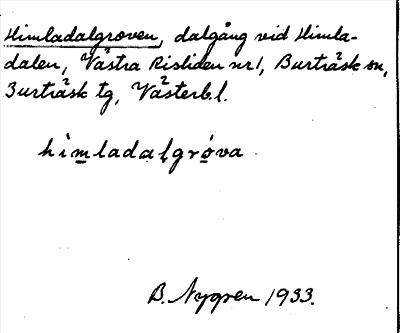 Himladalgroven, dalgång vid Himla-
dalen, Västra Risliden nr 1, Burträsk sn,
Burträsk tg, Västerb. l.
hìmladalgrǿva
B. Nygren 1933.